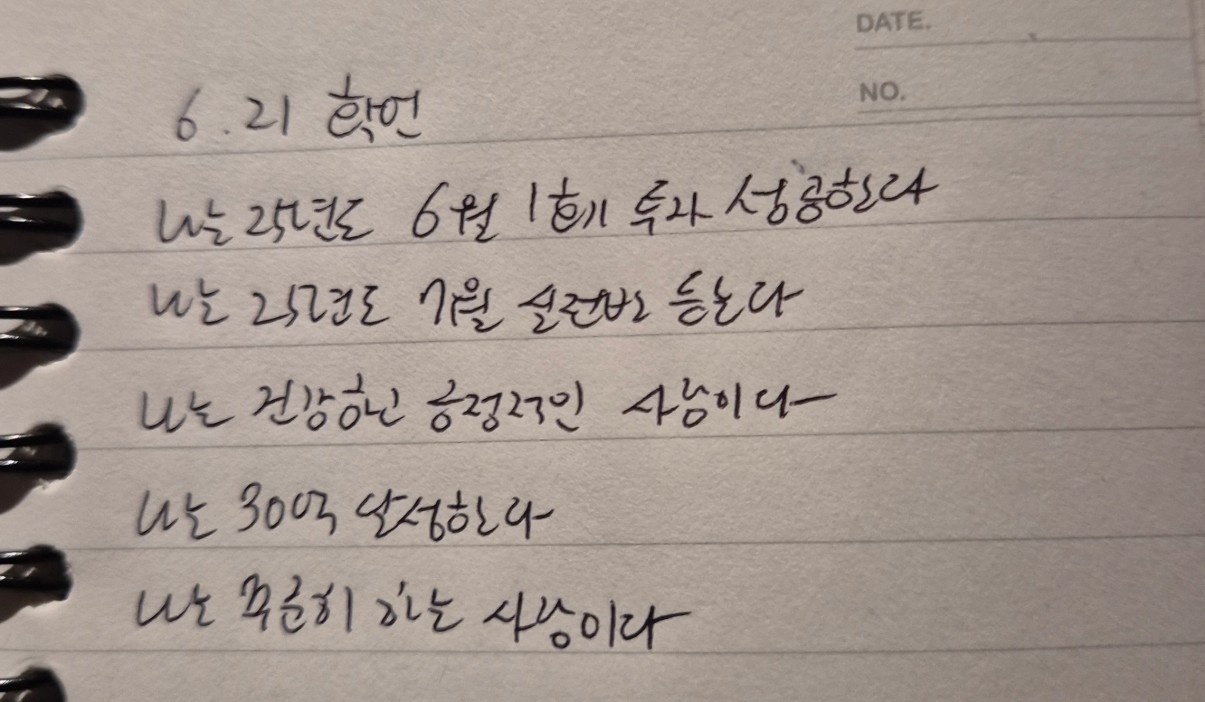 DATE.
NO.
6.21 확언
나는 25년도 6월 1호기 투자 성공한다
나는 25년도 7월 실전반 듣는다
나는 건강하고 긍정적인 사람이다
나는 300억 달성한다
나는 꾸준히 하는 사람이다